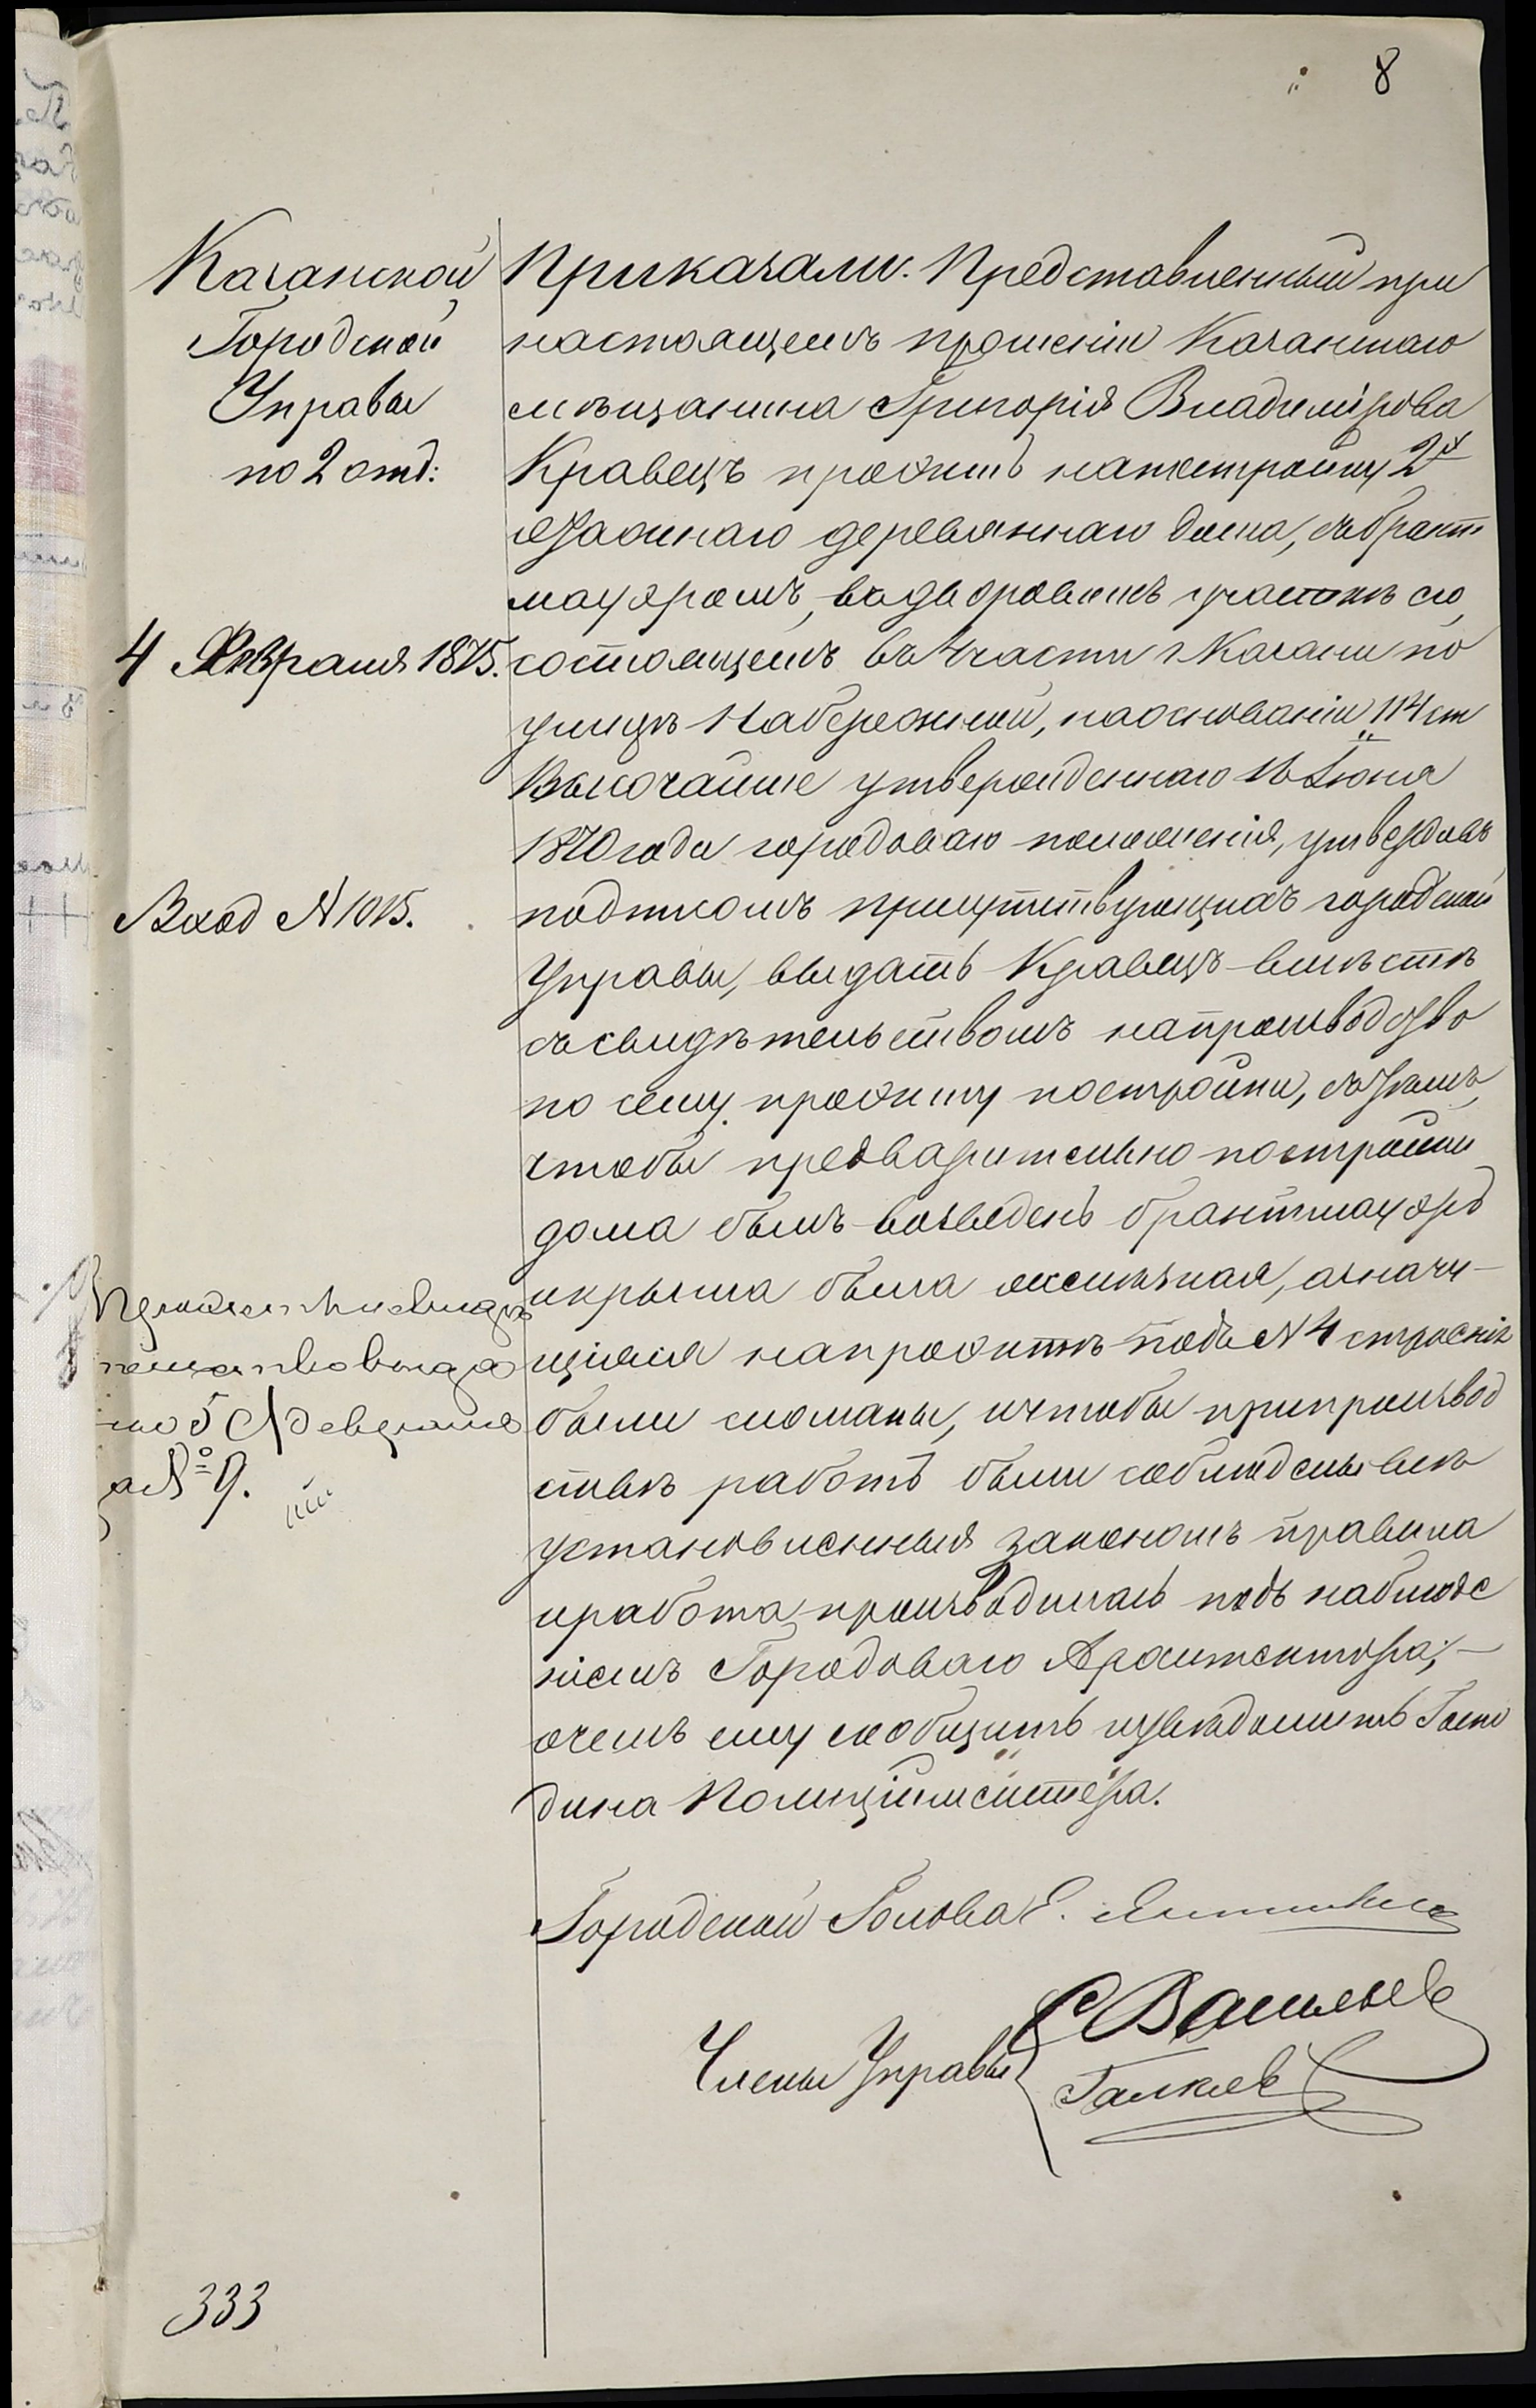 8
Казанской
Городской
Управы
по 2 отд:
4 Февраля 1875.
Вход № 1015.
по 5 Февраля
за № 9.
333
Приказали. Представленный при
настоящемъ прошеніи Казанскаго
мѣщанина Григорія Владимірова
Кравецъ проэктъ на постройку 2х
этажнаго деревяннаго дома, съ брант
мауэромъ, въ дворовомъ участкѣ его,
состоящемъ въ 4 части г. Казани по
улицѣ Набережной, на основаніи 114 ст
Высочайше утвержденнаго 16 Іюня
1870 года городоваго положенія, утвердивъ
подписомъ присутствующихъ городской
Управы, выдать Кравецъ вмѣстѣ
съ свидѣтельствомъ на производство
по сему проэкту постройки, съ тѣмъ,
чтобы предварительно постройки
дома былъ возведенъ брантмауэръ
и крыша была желѣзная, а значу-
щіяся на проэктѣ подъ № 4 строенія
были сломаны, и чтобы при производ
ствѣ работъ были соблюдены всѣ
установленныя закономъ правила
и работа производилась подъ наблюде
ніемъ Городоваго Архитектора;-
о чемъ ему сообщить и увѣдомить Госпо
дина Полиціймейстера.
Городской Голова Е.
Члены Управы
С Васильевъ
Галкинъ